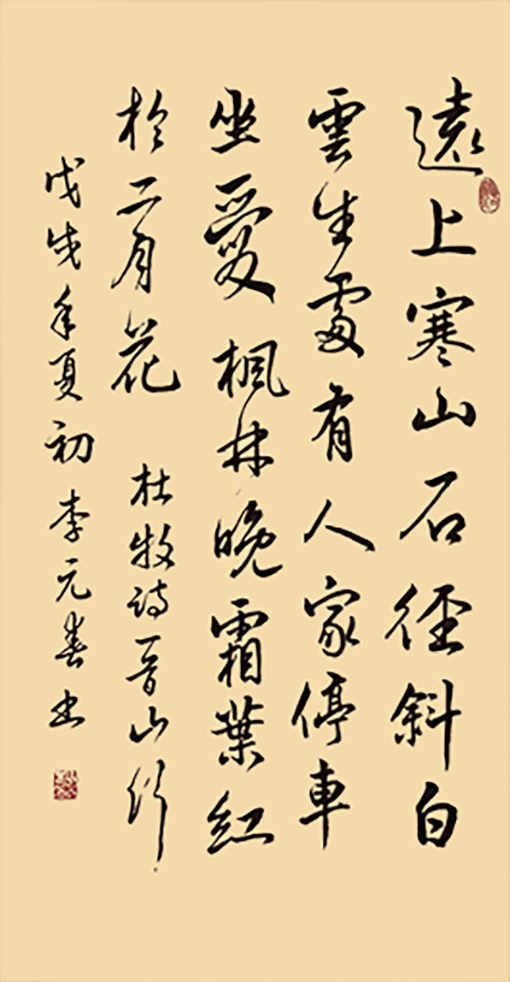 遠上寒山石徑斜白
雲生處有人家停車
坐愛楓林晚霜葉紅
於二月花
杜牧詩一首山行
戊戌年夏初李元春书